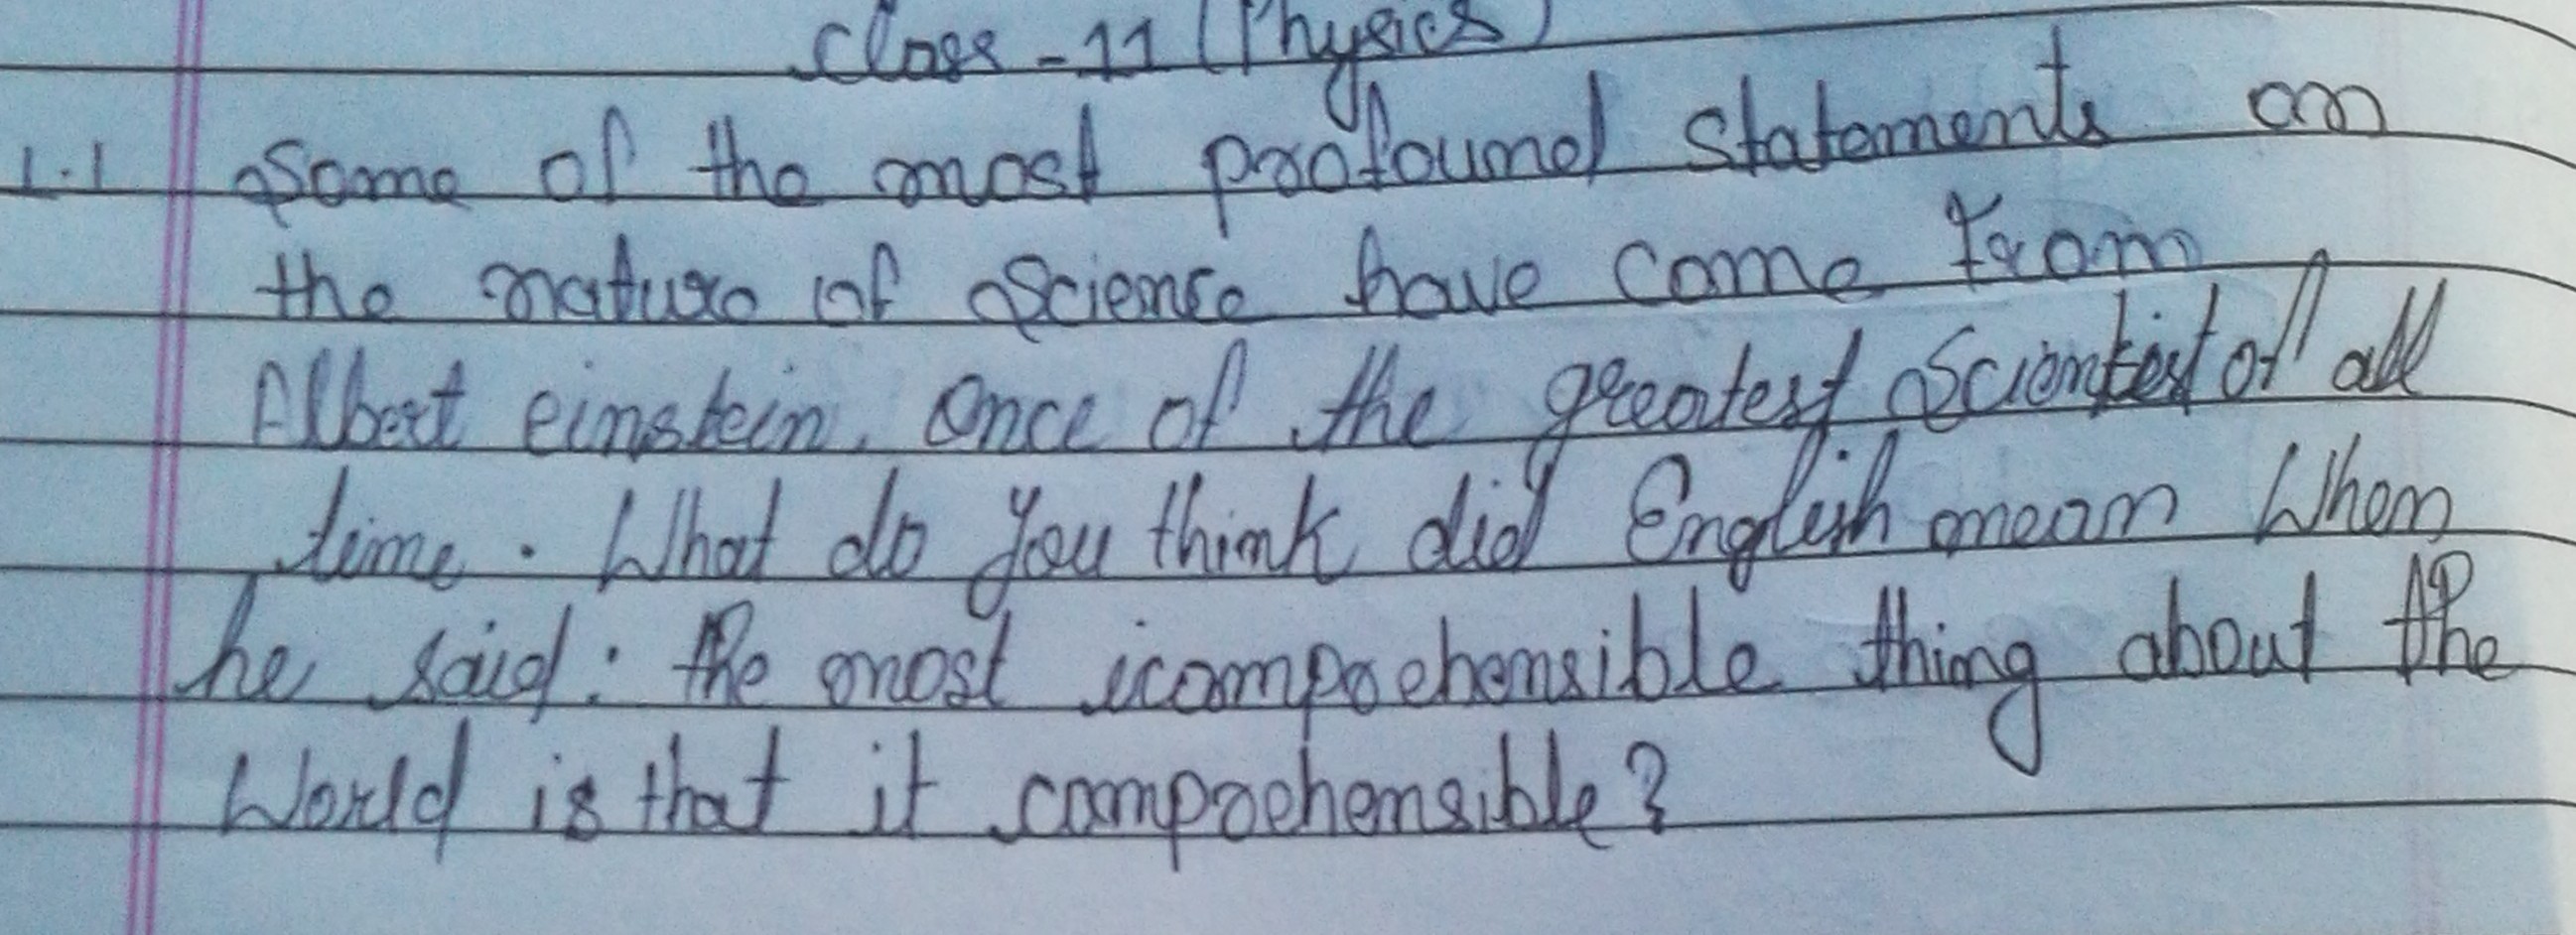 Class - 11 (Physics)
1.1 Some of the most profound statements on
the nature of Science have come from
Albert einstein, Once of the greatest Scientist of all
time. What do you think did English mean When
he said: the most icomprehensible thing about the
World is that it comprehensible?